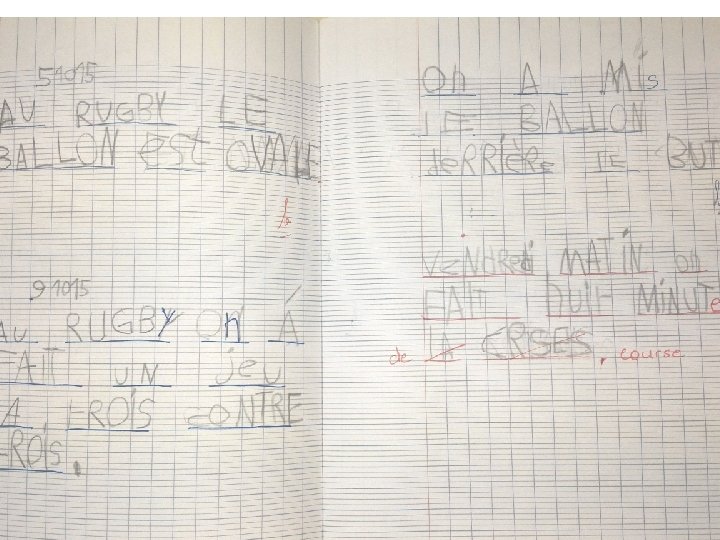 51015
AU RUGBY LE
BALLON est OVALE
91015
AU RUGBY On A
FAIT UN jeu
A TROIS CONTRE
TROIS.
On A MIs
LE BALLON
deRRIÈRE LE BUT
VeNdRedi MATIN on
FAIT DUIT MINUTe
de LA CRISES. course